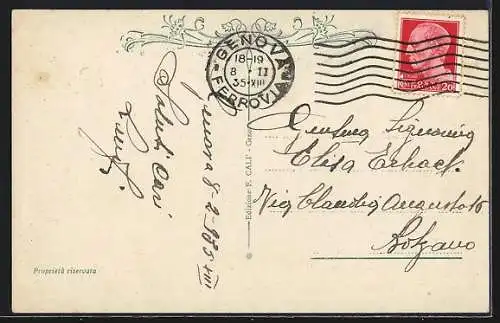 GENOVA
18-19
8 · II
35·XIII
FERROVIA
20
Saluti Cari
Luigi
Genova 8-2-935 XIII
Edizione F. CALI' - Genova
Gentma Signorina
Elisa
Via Claudia Augusta 16
Bolzano
Proprietà riservata